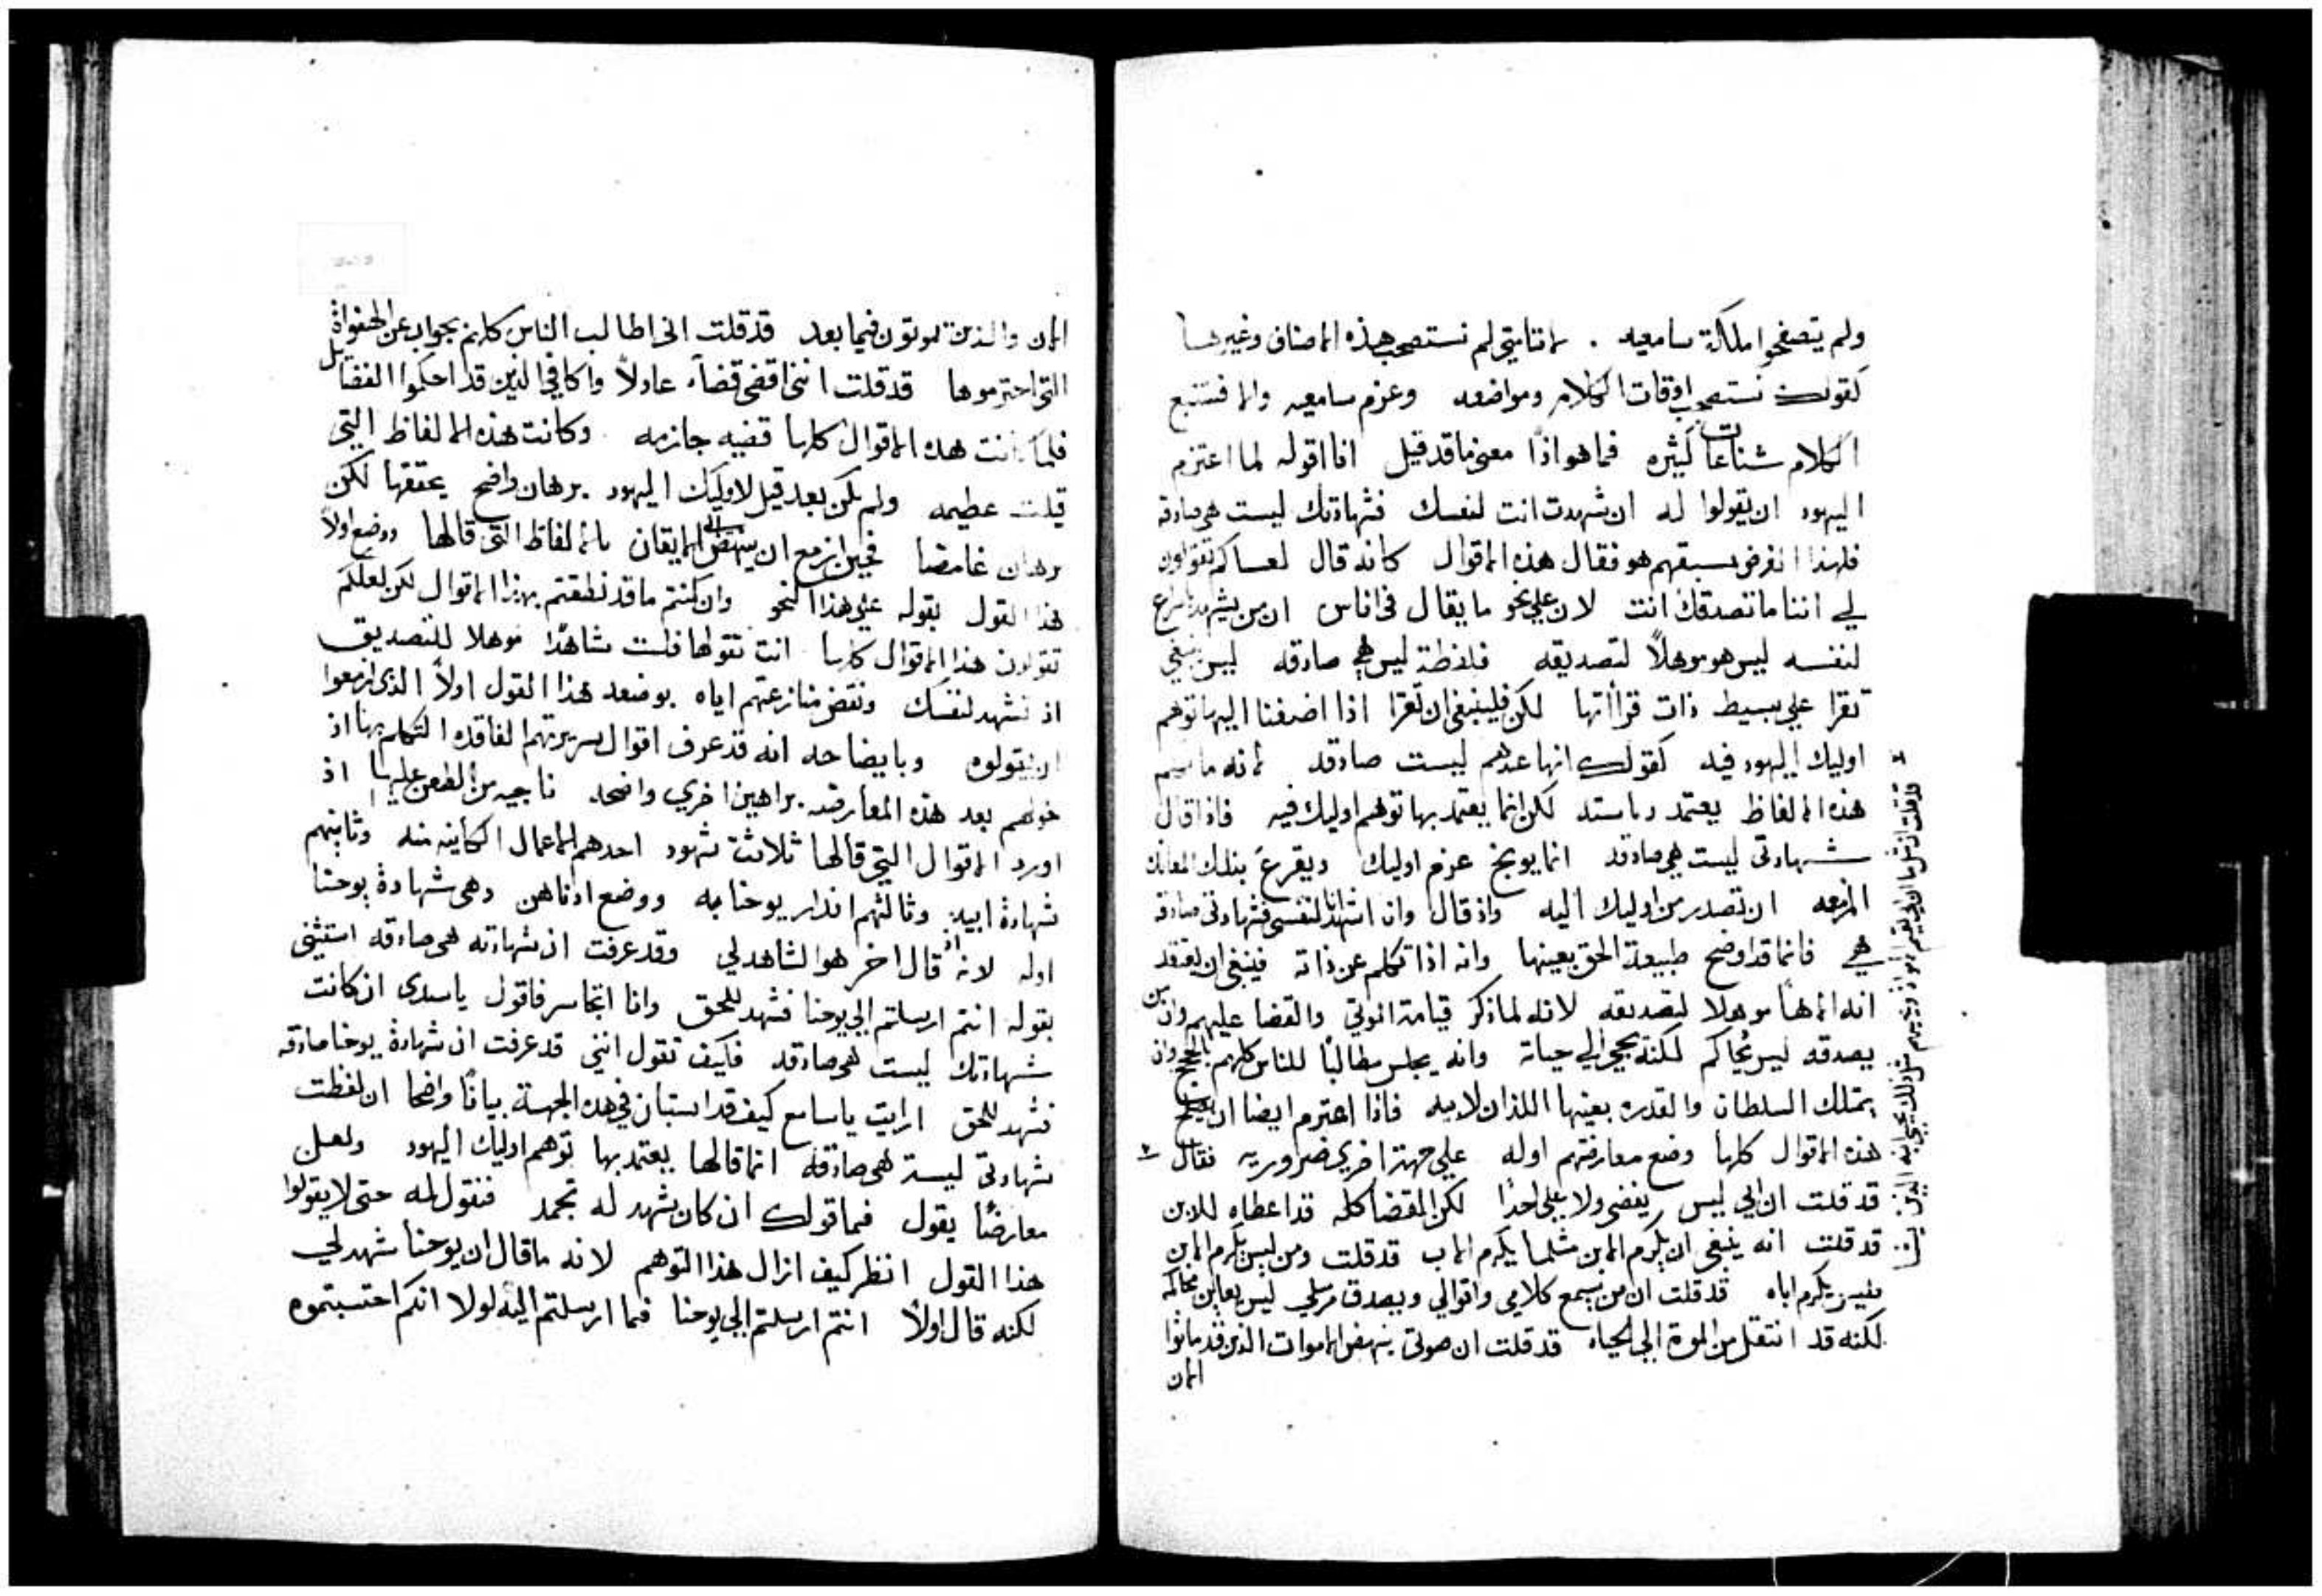 ولم يتصفحوا ملكة سامعيه . لاننا متي لم نستصحب هذه الاصناف وغيرها
كقولك نستصحب اوقات الكلام ومواضعه وعزم سامعيه والا فستتبع
الكلام شناعات كثيره فما هو اذًا معني ما قد قيل انا اقوله لما اعتزم
اليهود ان يقولوا له ان شهدت انت لنفسك فشهادتك ليست هي صادقه
فلهذا الغرض سبقهم هو فقال هذه الاقوال كانه قال لعساكم تقولون
لي اننا ما نصدقك انت لان علي نحو ما يقال في اناس ان من يشهد
لنفسه ليس هو موهلاً لتصديقه فلفظة ليس هي صادقه ليس ينبغي
تقرا علي بسيط ذات قراأتها لكن فلينبغي ان تقرا اذا اضفنا اليها توهم
اوليك اليهود فيه كقولك انها عندهم ليست صادقه لانه ما
هذه الالفاظ يعتمد لكن انما يعتمد بها توهم اوليك فيه فاذا قال
شهادتي ليست هي صادقه انما يوبخ عزم اوليك ويقرع بذلك
المزمعه ان تصدر من اوليك اليه واذ قال وان اشهد انا لنفسي فشهادتي صادقه
هي فانما قد اوضح طبيعة الحق بعينها وانه اذا تكلم عن ذاته فينبغي ان يعتقد
انه الاهًا موهلا لتصديقه لانه لما ذكر قيامة الموتي والقضا عليهم وان من
يصدقه ليس يُحاكم لكنه يجي الي حياة وانه يجلس مطالبًا للناس كلهم بالحجج وان
يمتلك السلطان والقدره بعينها اللذان لابيه فاذا اعتزم ايضا ان
هذه الاقوال كلها وضع معارضتهم اوله علي جهة اخري ضروريه فقال
قد قلت ان ابي ليس يقضي ولا علي احدًا لكن القضا كله قد اعطاه للابن
قد قلت انه ينبغي ان يكرم الابن مثلما يكرم الاب قد قلت ومن ليس يكرم الابن
فليس يكرم اباه قد قلت ان من يسمع كلامي واقوالي ويصدق مرسلي ليس يعاين محاكمه
لكنه قد انتقل من الموة الي الحياه قد قلت ان صوتي ينهض الاموات الذين قد ماتوا
الان
قد قلت ان مثل ما ان ابي يقيم الاموات مثل ذلك يحيي ابنه الذين
الان والذين يموتون فيما بعد قد قلت اني اطالب الناس كلهم بجواب عن الهفوات
التي اجترموها قد قلت انني اقضي قضاء عادلاً واكافي الذين قد احكموا الفضايل
فلما كانت هذه الاقوال كلها قضيه جازمه وكانت هذه الالفاظ التي
قيلت عظيمه ولم يكن بعد قيل لاوليك اليهود برهان واضح يحققها لكن
برهان غامضا فحين ازمع ان ينهض الي الايقان بالالفاظ التي قالها ووضع اولاً
هذا القول بقوله علي هذا النحو وان كنتم ما قد نطقتم بهذا الاقوال لكن لعلكم
تقولون هذا الاقوال كلها انت تقولها فلست شاهدًا موهلا للتصديق
اذ تشهد لنفسك ونقض منازعتهم اياه بوضعه هذا القول اولاً الذي ازمعوا
ان يقولوه وبايضاحه انه قد عرف اقوال سريرتهم الفاقده التكلم بها اذ
خولهم بعد هذه المعارضه براهين اخري واضحه ناجيه من الطعن عليها اذ
اورد الاقوال التي قالها ثلاثة شهود احدهم الاعمال الكاينه منه وثانيهم
شهادة ابيه وثالثهم انذار يوحنا به ووضع ادناهن وهي شهادة يوحنا
اوله لانه اذ قال اخر هو الشاهد لي وقد عرفت ان شهادته هي صادقه استثني
بقوله انتم ارسلتم الي يوحنا فشهد للحق وانا اتجاسر فاقول ياسيدي ان كانت
شهادتك ليست هي صادقه فكيف تقول انني قد عرفت ان شهادة يوحنا صادقه
فشهد للحق ارايت ياسامع كيف قد استبان في هذه الجهة بيانًا واضحا ان لفظت
شهادتي ليسة هي صادقه انما قالها يعتمد بها توهم اوليك اليهود ولعل
معارضًا يقول فما قولك ان كان شهد له تجمد فنقول له حتي لا يقولوا
هذا القول انظر كيف ازال هذا التوهم لانه ما قال ان يوحنا شهد لي
لكنه قال اولاً انتم ارسلتم الي يوحنا فما ارسلتم اليه لولا انكم احتسبتموه